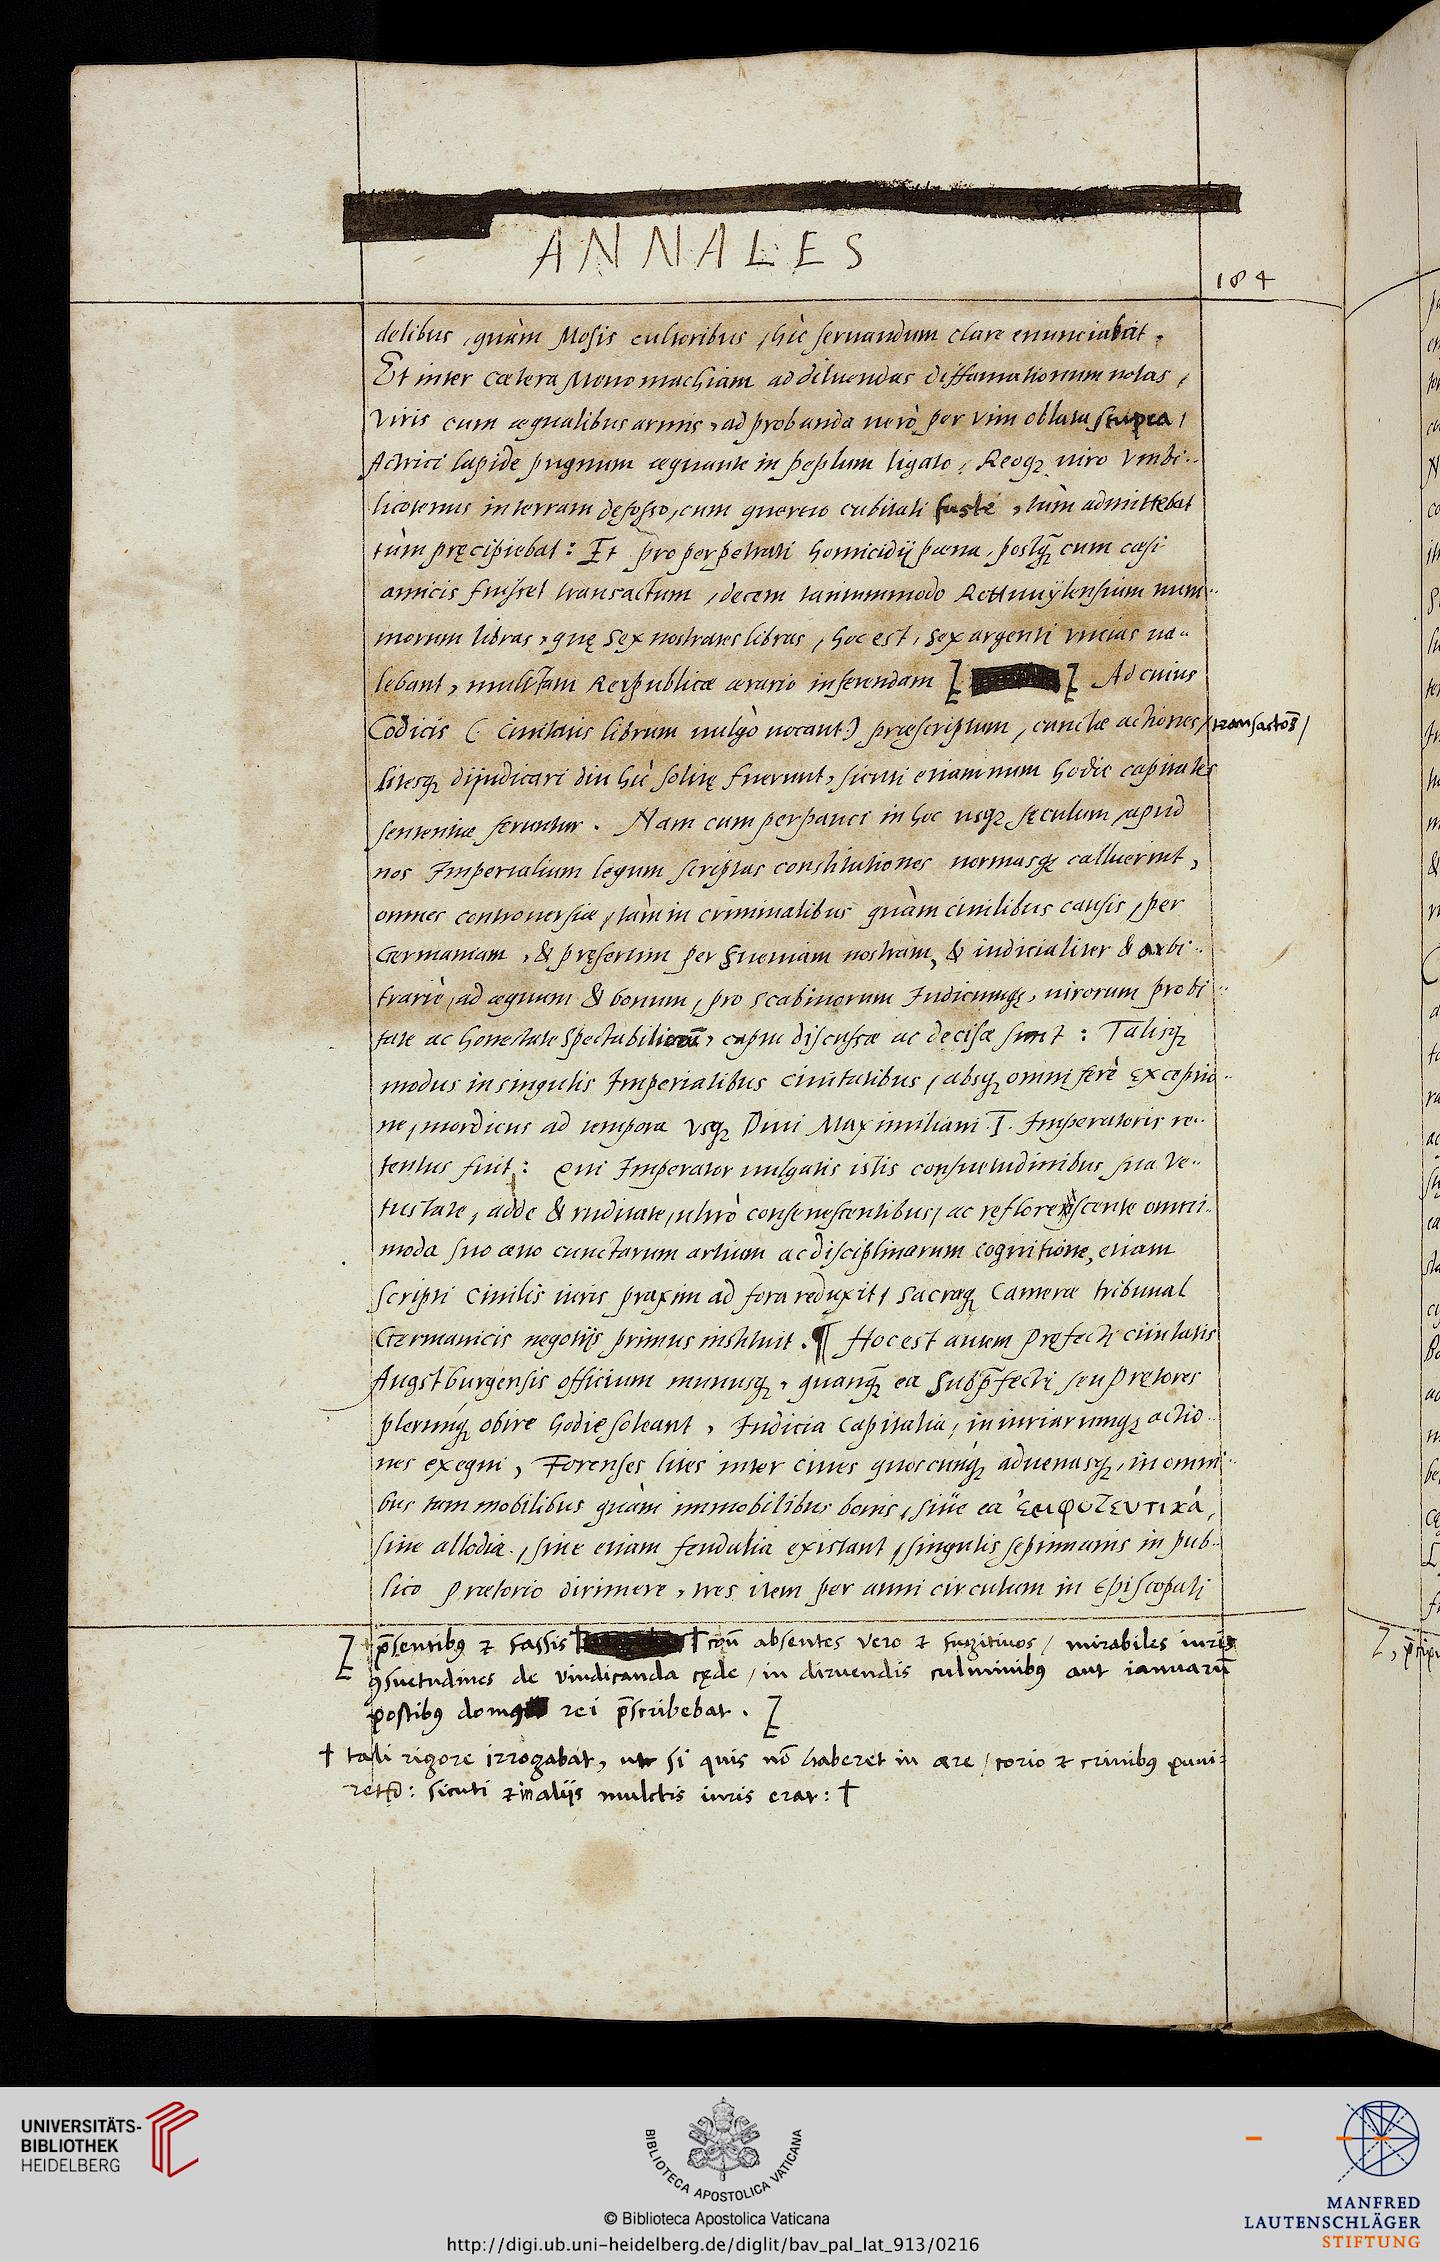 ANNALES
184
delibus, quàm Mosis cultoribus, hîc seruandum clare enunciabat.
Et inter cætera Monomachiam ad diluendas diffamationum notas,
Viris cum æqualibus armis, ad probanda uerò per vim oblata stupra,
Actrici lapide pugnum æquante in peplum ligato, Reoq; uiro Vmbi-
licotenus in terram defosso, cum quereo cubitali fuste, tùm admittebat
tùm pręcipiebat: Et pro perpetrati homicidij pœna, postq̃ cum cæsi
amicis fuisset transactum, decem tantummodo Rottuuÿlensium num-
morum libras, quę sex nostrates libras, hoc est, sex argenti vncias ua-
lebant, mulctam Reipublicæ ærario inferendam [ ] Ad cuius
Codicis (Ciuitatis librum uulgò uocant) præscriptum, cunctæ actiones /transactoēs/
litesq; dijudicari diu hîc solitę fuerunt, sicuti etiamnum hodie capitales
sententiæ feruntur. Nam cum perpauci in hoc usq; sęculum apud
nos Imperialium legum scriptas constitutiones normasq; calluerint,
omnes controuersiæ, tàm in criminalibus quàm ciuilibus causis, per
Germaniam, & pręsertim per Sueuiam nostram, & iudicialiter & arbi-
trariè, ad æquum & bonum, pro scabinorum Iudicumq;, uirorum probi-
tate ac honestate spectabiliorū, captu discussæ ac decisæ sunt: Talisq;
modus in singulis Imperialibus ciuitatibus, absq; omni ferè exceptio-
ne, mordicus ad tempora vsq; Diui Maximiliani .I. Imperatoris re-
tentus fuit: Qui Imperator uulgatis istis consuetudinibus sua ve-
tustate, adde & ruditate, ultrò consenescentibus, ac reflorescente omni-
moda suo æuo cunctarum artium ac disciplinarum cognitione, etiam
scripti Ciuilis iuris praxim ad fora reduxit, sacræq; Cameræ tribunal
Germanicis negotijs primus instituit. ¶ Hoc est autem Pręfecti ciuitatis
Augstburgensis officium munusq;, quanq̃ ea Subp̄fecti seu Prętores
plerunq; obire hodie soleant, Iudicia capitalia, iniuriarumq; actio-
nes exequi, Forenses lites inter ciues quoscunq; aduenasq;, in omni-
bus tam mobilibus quàm immobilibus bonis, siue ea ἐμφυτευτικά,
siue allodia, siue etiam feudalia existant, singulis septimanis in pub-
lico Prætorio dirimere, tres item per anni circulum in Episcopali
[ p̄sentibꝫ & fassis † † coñ absentes vero & fugitiuos / mirabiles iuris
ꝯsuetudines de vindicanda cęde / in diruendis culminibꝫ aut ianuarū
postibꝫ domꝫ rei p̄scribebat. ]
† tali rigore irrogabat, ut si quis nō haberet in ære / corio & crinibꝫ puni-
ret: sicuti & in alijs mulctis iuris erat: †
UNIVERSITÄTS-
BIBLIOTHEK
HEIDELBERG
BIBLIOTECA APOSTOLICA VATICANA
© Biblioteca Apostolica Vaticana
http://digi.ub.uni-heidelberg.de/diglit/bav_pal_lat_913/0216
MANFRED
LAUTENSCHLÄGER
STIFTUNG